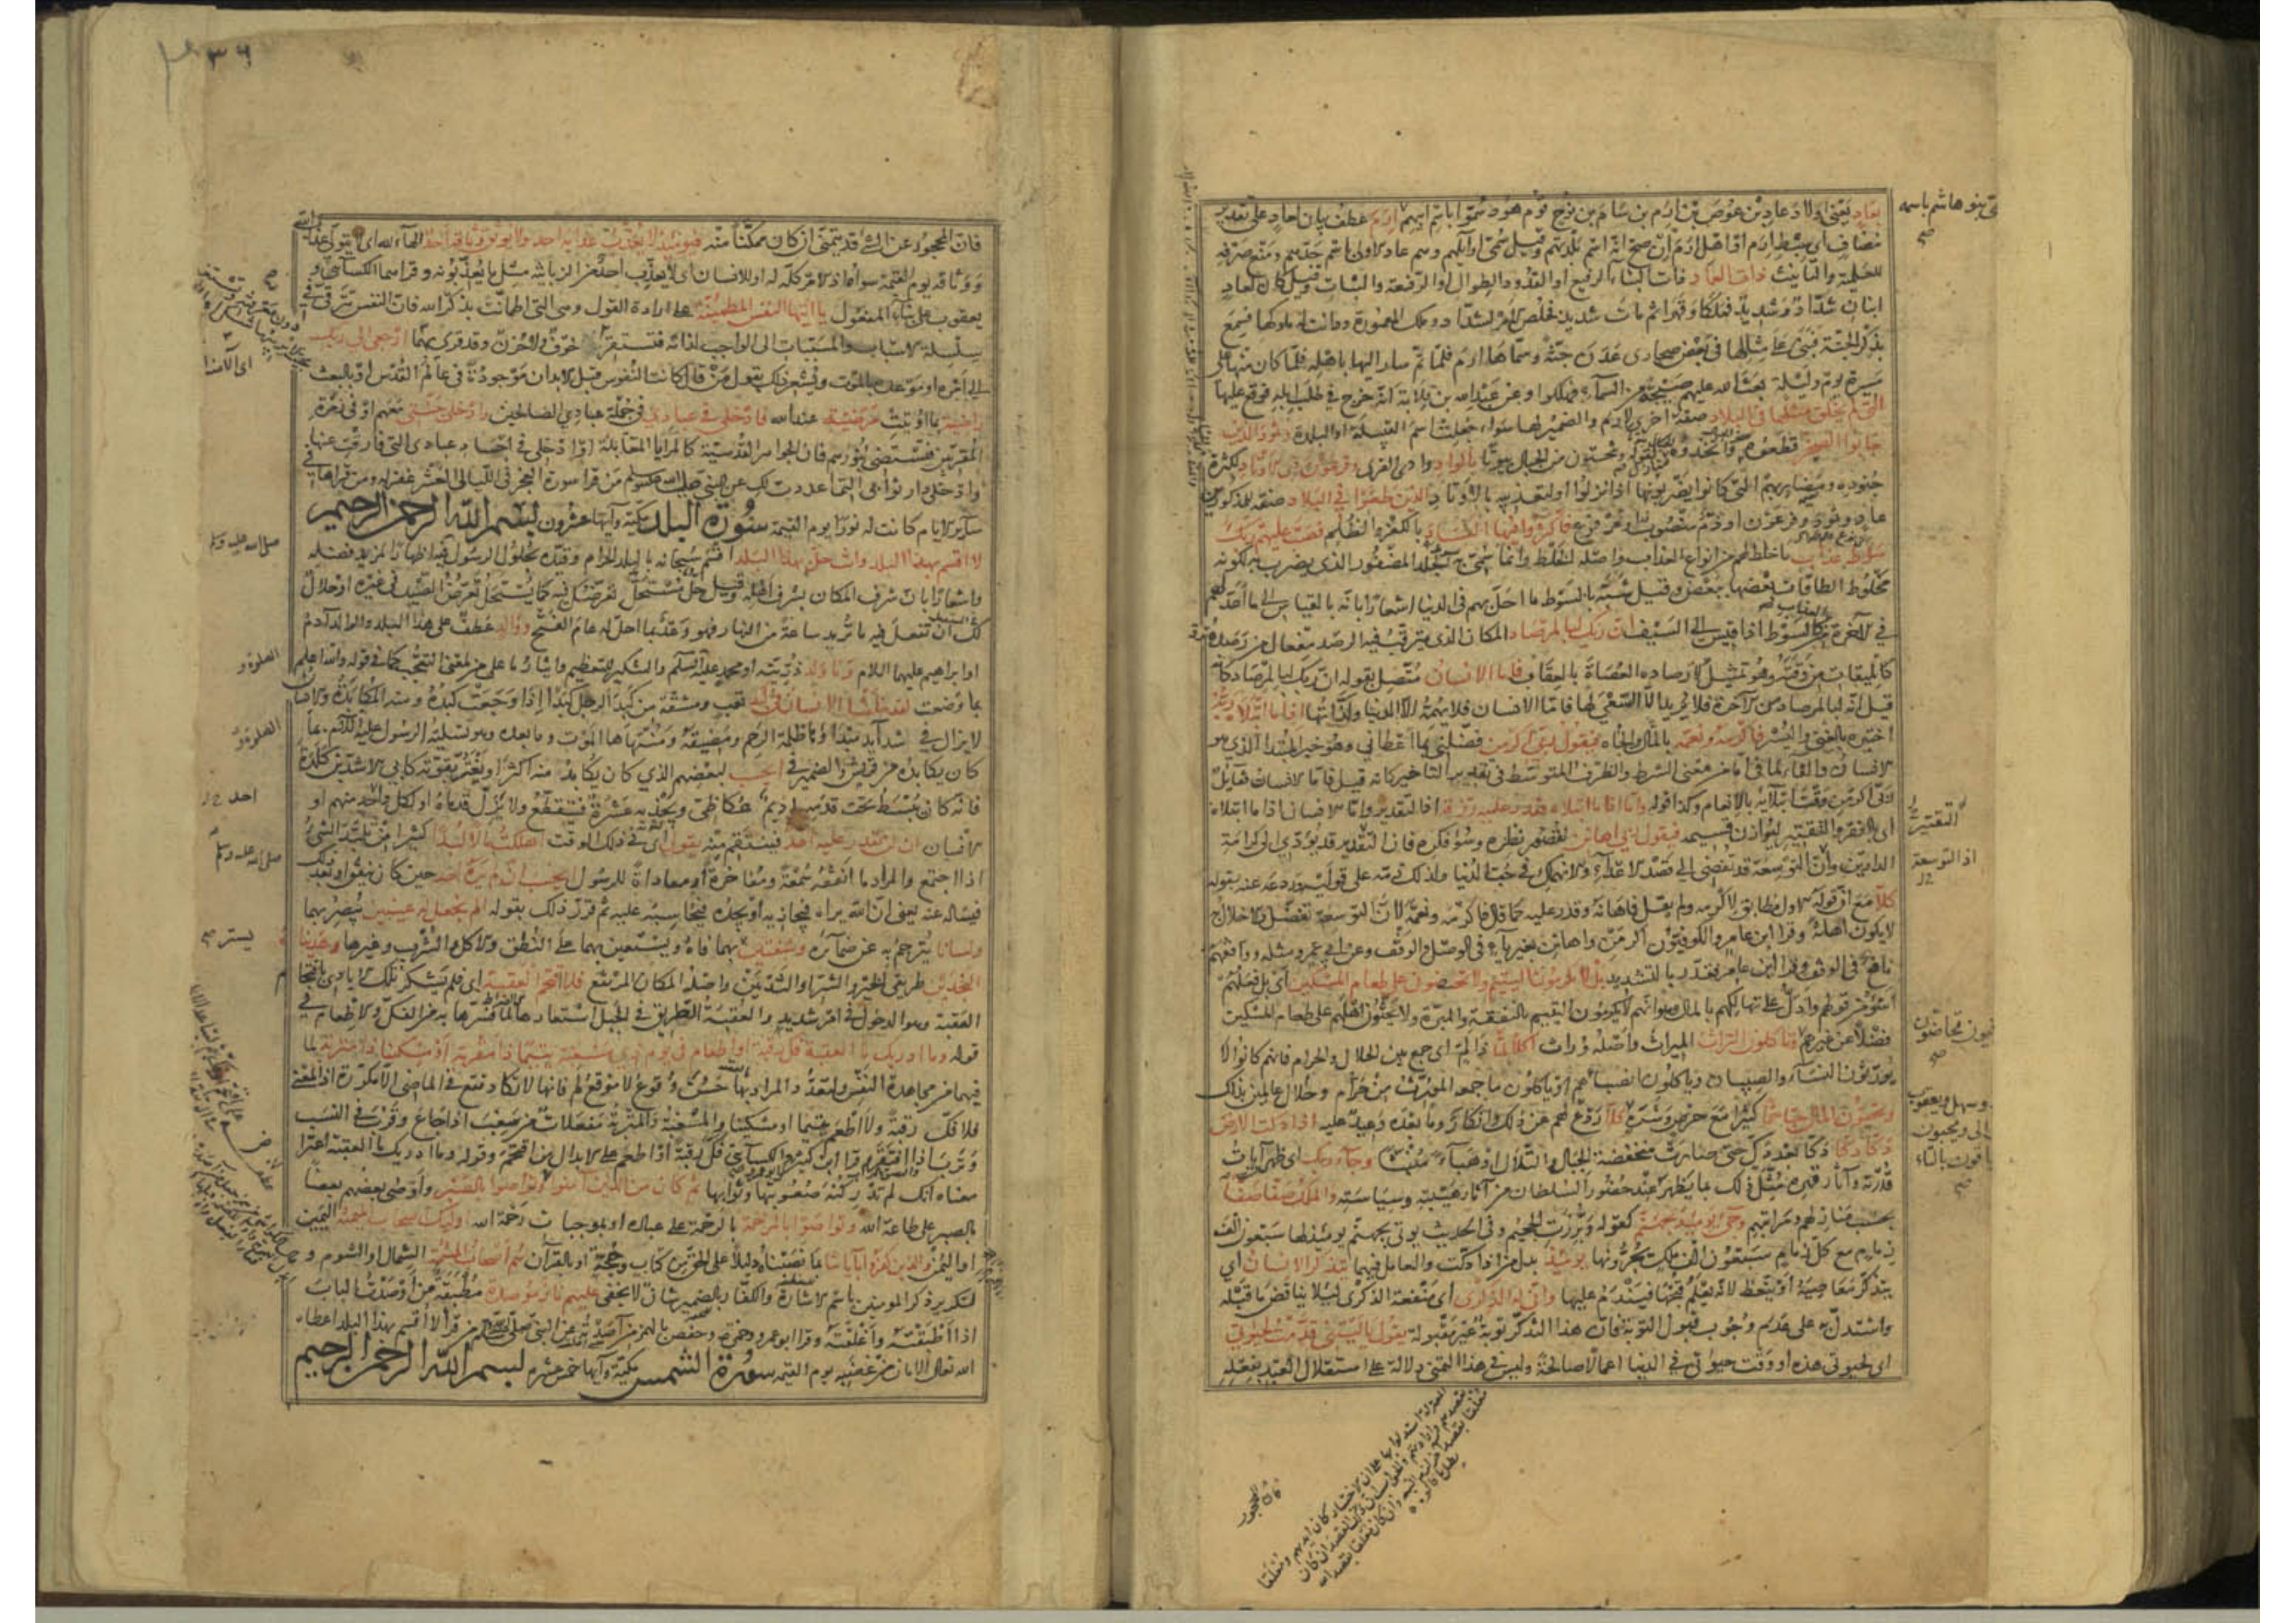 بعاد يعنى اولاد عاد بن عوص بن ارم بن سام بن نوح قوم هود سموا باسم ابيهم ارم عطف بيان لعاد على تقدير
مضاف اى سبط ارم او اهل ارم ان صح انه اسم بلدتهم وقيل سمى اوايلهم وهم عاد الاولى باسم جدهم ومنع صرفه
للعلمية والتانيث ذات العماد ذات البناء الرفيع او القدود الطوال او الرفعة والثبات وقيل كان لعاد
ابنان شداد وشديد فملكا وقهرا ثم مات شديد فخلص الامر لشداد وملك المعمورة ودانت له ملوكها فسمع
بذكر الجنة فبنى على مثالها فى بعض صحارى عدن جنة وسماها ارم فلما تم سار اليها باهله فلما كان منها على
مسيرة يوم وليلة بعث الله عليهم صيحة من السماء فهلكوا وعن عبد الله بن قلابة انه خرج فى طلب ابله فوقع عليها
التى لم يخلق مثلها فى البلاد صفة اخرى لارم والضمير لها سواء جعلت اسم القبيلة او البلدة وثمود الذين
جابوا الصخر قطعوه واتخذوه منازل لقوله وتنحتون من الجبال بيوتا بالواد وادى القرى وفرعون ذى الاوتاد لكثرة
جنوده ومضاربهم التى كانوا يضربونها اذا نزلوا او لتعذيبه بالاوتاد الذين طغوا فى البلاد صفة للمذكورين
عاد وثمود وفرعون او ذم منصوب او مرفوع فاكثروا فيها الفساد بالكفر والظلم فصب عليهم ربك
سوط عذاب ما خلط لهم من انواع العذاب واصله الخلط وانما سمى به الجلد المضفور الذى يضرب به لكونه
مخلوط الطاقات بعضها ببعض وقيل شبه بالسوط ما احل بهم فى الدنيا اشعارا بانه بالقياس الى ما اعد لهم
فى الاخرة من العذاب كالسوط اذا قيس الى السيف ان ربك لبالمرصاد المكان الذى يترقب فيه الرصد مفعال من رصده
كالميقات من وقته وهو تمثيل لارصاده العصاة بالعقاب فاما الانسان متصل بقوله ان ربك لبالمرصاد كانه
قيل انه لبالمرصاد من الاخرة فلا يريد الا السعى لها فاما الانسان فلا يهمه الا الدنيا ولذاتها اذا ما ابتلاه ربه
اختبره بالغنى واليسر فاكرمه ونعمه بالمال والجاه فيقول ربى اكرمن فضلنى بما اعطانى وهو خبر المبتدا الذى هو
الانسان والفاء لما فى اما من معنى الشرط والظرف المتوسط فى تقدير التاخير كانه قيل فاما الانسان فقايل
ربى اكرمن وقت ابتلائه بالانعام وكذا قوله واما اذا ما ابتلاه فقدر عليه رزقه اذا التقدير واما الانسان اذا ما ابتلاه
اى بالفقر والتقتير ليوازن قسيمه فيقول ربى اهانن لقصور نظره وسوء فكره فان التقتير قد يؤدى الى كرامة
الدارين وان التوسعة قد تفضى الى قصد الاعداء والانهماك فى حب الدنيا ولذلك ذمه على قوليه وردعه عنه بقوله
كلا مع ان قوله الاول مطابق لاكرمه ولم يقل فاهانه وقدر عليه كما قال فاكرمه ونعمه لان التوسعة تفضل والاخلال به
لا يكون اهانة وقرا ابن عامر والكوفيون اكرمن واهانن بغير ياء فى الوصل والوقف وعن ابى عمرو مثله ووافقهم
نافع فى الوقف وقرا ابن عامر فقدر بالتشديد بل لا تكرمون اليتيم ولا تحضون على طعام المسكين اى بل فعلهم
اسوء من قولهم وادل على تهالكهم بالمال وهو انهم لا يكرمون اليتيم بالنفقة والمبرة ولا يحثون اهلهم على طعام المسكين
فضلا عن غيرهم وتاكلون التراث الميراث واصله وراث اكلا لما ذا لم اى جمع بين الحلال والحرام فانهم كانوا لا
يورثون النساء والصبيان وياكلون انصباءهم او ياكلون ما جمعه المورث من حرام وحلال عالمين بذلك
وتحبون المال حبا جما كثيرا مع حرص وشره كلا ردع لهم عن ذلك وانكار وما بعده وعيد عليه اذا دكت الارض
دكا دكا دكا بعد دك حتى صارت منخفضة الجبال والتلال او هباء منبثا وجاء ربك اى ظهر آيات
قدرته وآثار قهره مثل ذلك بما يظهر عند حضور السلطان من آثار هيبته وسياسته والملك صفا صفا
بحسب منازلهم ومراتبهم وجئ يومئذ بجهنم كقوله وبرزت الجحيم وفى الحديث يوتى بجهنم يومئذ لها سبعون الف
زمام مع كل زمام سبعون الف ملك يجرونها يومئذ بدل من اذا دكت والعامل فيهما يتذكر الانسان اى
يتذكر معاصيه او يتعظ لانه يعلم قبحها فيندم عليها وانى له الذكرى اى منفعة الذكرى لئلا يناقض ما قبله
واستدل به على عدم وجوب قبول التوبة فان هذا التذكر توبة غير مقبولة يقول يا ليتنى قدمت لحيوتى
اى لحيوتى هذه او وقت حيوتى فى الدنيا اعمالا صالحة وليس فى هذا التمنى دلالة على استقلال العبد بفعله
بنو هاشم باسمه
التقتير
اذ التوسعة
تحاضون
وسهل ويعقوب
الى ويحبون
بالتاء
المحجور
٣٦
فان المحجور عن الشئ قد يتمنى ان كان ممكنا منه فيومئذ لا يعذب عذابه احد ولا يوثق وثاقه احد الهاء لله اى لا يتولى عذاب الله
ووثاقه يوم القيمة سواه اذ الامر كله له او للانسان اى لا يعذب احد من الزبانية مثل ما يعذبونه وقراهما الكسائى و
يعقوب على بناء المفعول يا ايتها النفس المطمئنة على ارادة القول وهى التى اطمانت بذكر الله فان النفس تترقى فى
سلسلة الاسباب والمسببات الى الواجب لذاته فتستقر خوف ولا حزن وقد قرئ بهما ارجعى الى ربك
الى امره او موعده بالموت ويشعر ذلك بقول من قال كانت النفوس قبل الابدان موجودة فى عالم القدس او بالبعث
راضية بما اوتيت مرضية عند الله فادخلى فى عبادى فى جملة عبادى الصالحين وادخلى جنتى معهم او فى زمرة
المقربين فتستضئ بنورهم فان الجواهر القدسية كالمرايا المقابلة او ادخلى فى اجساد عبادى التى فارقت عنها
وادخلى دار ثوابى التى اعددت لك عن النبى صلى الله عليه وسلم من قرا سورة الفجر فى الليالى العشر غفر له ومن قراها فى
ساير الايام كانت له نورا يوم القيمة سورة البلد مكية وآيها عشرون بسم الله الرحمن الرحيم
لا اقسم بهذا البلد وانت حل بهذا البلد اقسم سبحانه بالبلد الحرام وقيده بحلول الرسول فيه اظهارا لمزيد فضله
واشعارا بان شرف المكان بشرف اهله وقيل حل مستحل تعرضك فيه كما يستحل تعرض الصيد فى غيره او حلال
لك ان تفعل فيه ما تريد ساعة من النهار فهو وعد بما احل له عام الفتح ووالد عطف على هذا البلد والوالد آدم
او ابراهيم عليهما السلام وما ولد ذريته او محمد عليه السلم والتنكير للتعظيم وايثار ما على من لمعنى التعجب كما فى قوله والله اعلم
بما وضعت لقد خلقنا الانسان فى كبد تعب ومشقة من كبد الرجل كبدا اذا وجعت كبده ومنه المكابدة والانسان
لا يزال فى شدايد مبدؤها ظلمة الرحم ومضيقه ومنتهاها الموت وما بعده وهو تسلية للرسول عليه السلم مما
كان يكابده من قريش والضمير فى ايحسب لبعضهم الذى كان يكابد منه اكثر او يغتر بقوته كابى الاشد بن كلدة
فانه كان يبسط تحت قدميه اديم عكاظى ويجذبه عشرة فيتقطع ولا يزل قدماه او لكل واحد منهم او
الانسان ان لن يقدر عليه احد فينتقم منه يقول اى فى ذلك الوقت اهلكت مالا لبدا كثيرا من تلبد الشئ
اذا اجتمع والمراد ما انفقه سمعة ومفاخرة او معاداة للرسول ايحسب ان لم يره احد حين كان ينفق او بعد ذلك
فيساله عنه يعنى ان الله يراه فيجازيه او يجده فيحاسبه عليه ثم قرر ذلك بقوله الم نجعل له عينين يبصر بهما
ولسانا يترجم به عن ضمائره وشفتين يستر بهما فاه ويستعين بهما على النطق والاكل والشرب وغيرها وهديناه
النجدين طريقى الخير والشر او الثديين واصله المكان المرتفع فلا اقتحم العقبة اى فلم يشكر تلك الايادى باقتحام
العقبة وهو الدخول فى امر شديد والعقبة الطريق فى الجبل استعارها لما فسرها به من الفك والاطعام فى
قوله وما ادريك ما العقبة فك رقبة او اطعام فى يوم ذى مسغبة يتيما ذا مقربة او مسكينا ذا متربة لما
فيهما من مجاهدة النفس ولتعدد المراد بها حسن وقوع لا موقع لم فانها لا تكاد تقع فى الماضى الا مكررة اذ المعنى
فلا فك رقبة ولا اطعم يتيما او مسكينا والمسغبة والمقربة والمتربة مفعلات من سغب اذا جاع وقرب فى النسب
وترب اذا افتقر وقرا ابن كثير والكسائى فك رقبة او اطعم على الابدال من اقتحم وقوله وما ادريك ما العقبة اعتراض
معناه انك لم تدر كنه صعوبتها وثوابها ثم كان من الذين آمنوا وتواصوا بالصبر واوصى بعضهم بعضا
بالصبر على طاعة الله وتواصوا بالمرحمة بالرحمة على عباده او بموجبات رحمة الله اولئك اصحاب الميمنة اليمين
او اليمن والذين كفروا بآياتنا بما نصبناه دليلا على الحق من كتاب وحجة او بالقرآن هم اصحاب المشئمة الشمال او الشوم و
لتكرير ذكر المومنين باسم الاشارة والكفار بالضمير شان لا يخفى عليهم نار موصدة مطبقة من اوصدت الباب
اذا اطبقته واغلقته وقرا ابو عمرو وحمزة وحفص بالهمز من آصدته عن النبى صلى الله عليه وسلم من قرا لا اقسم بهذا البلد اعطاه
الله تعالى الامان من غضبه يوم القيمة سورة الشمس مكية وآيها خمس عشرة بسم الله الرحمن الرحيم
صلى الله عليه وسلم
الصلوة و
الصلوة و
احد
صلى الله عليه وسلم
يستر